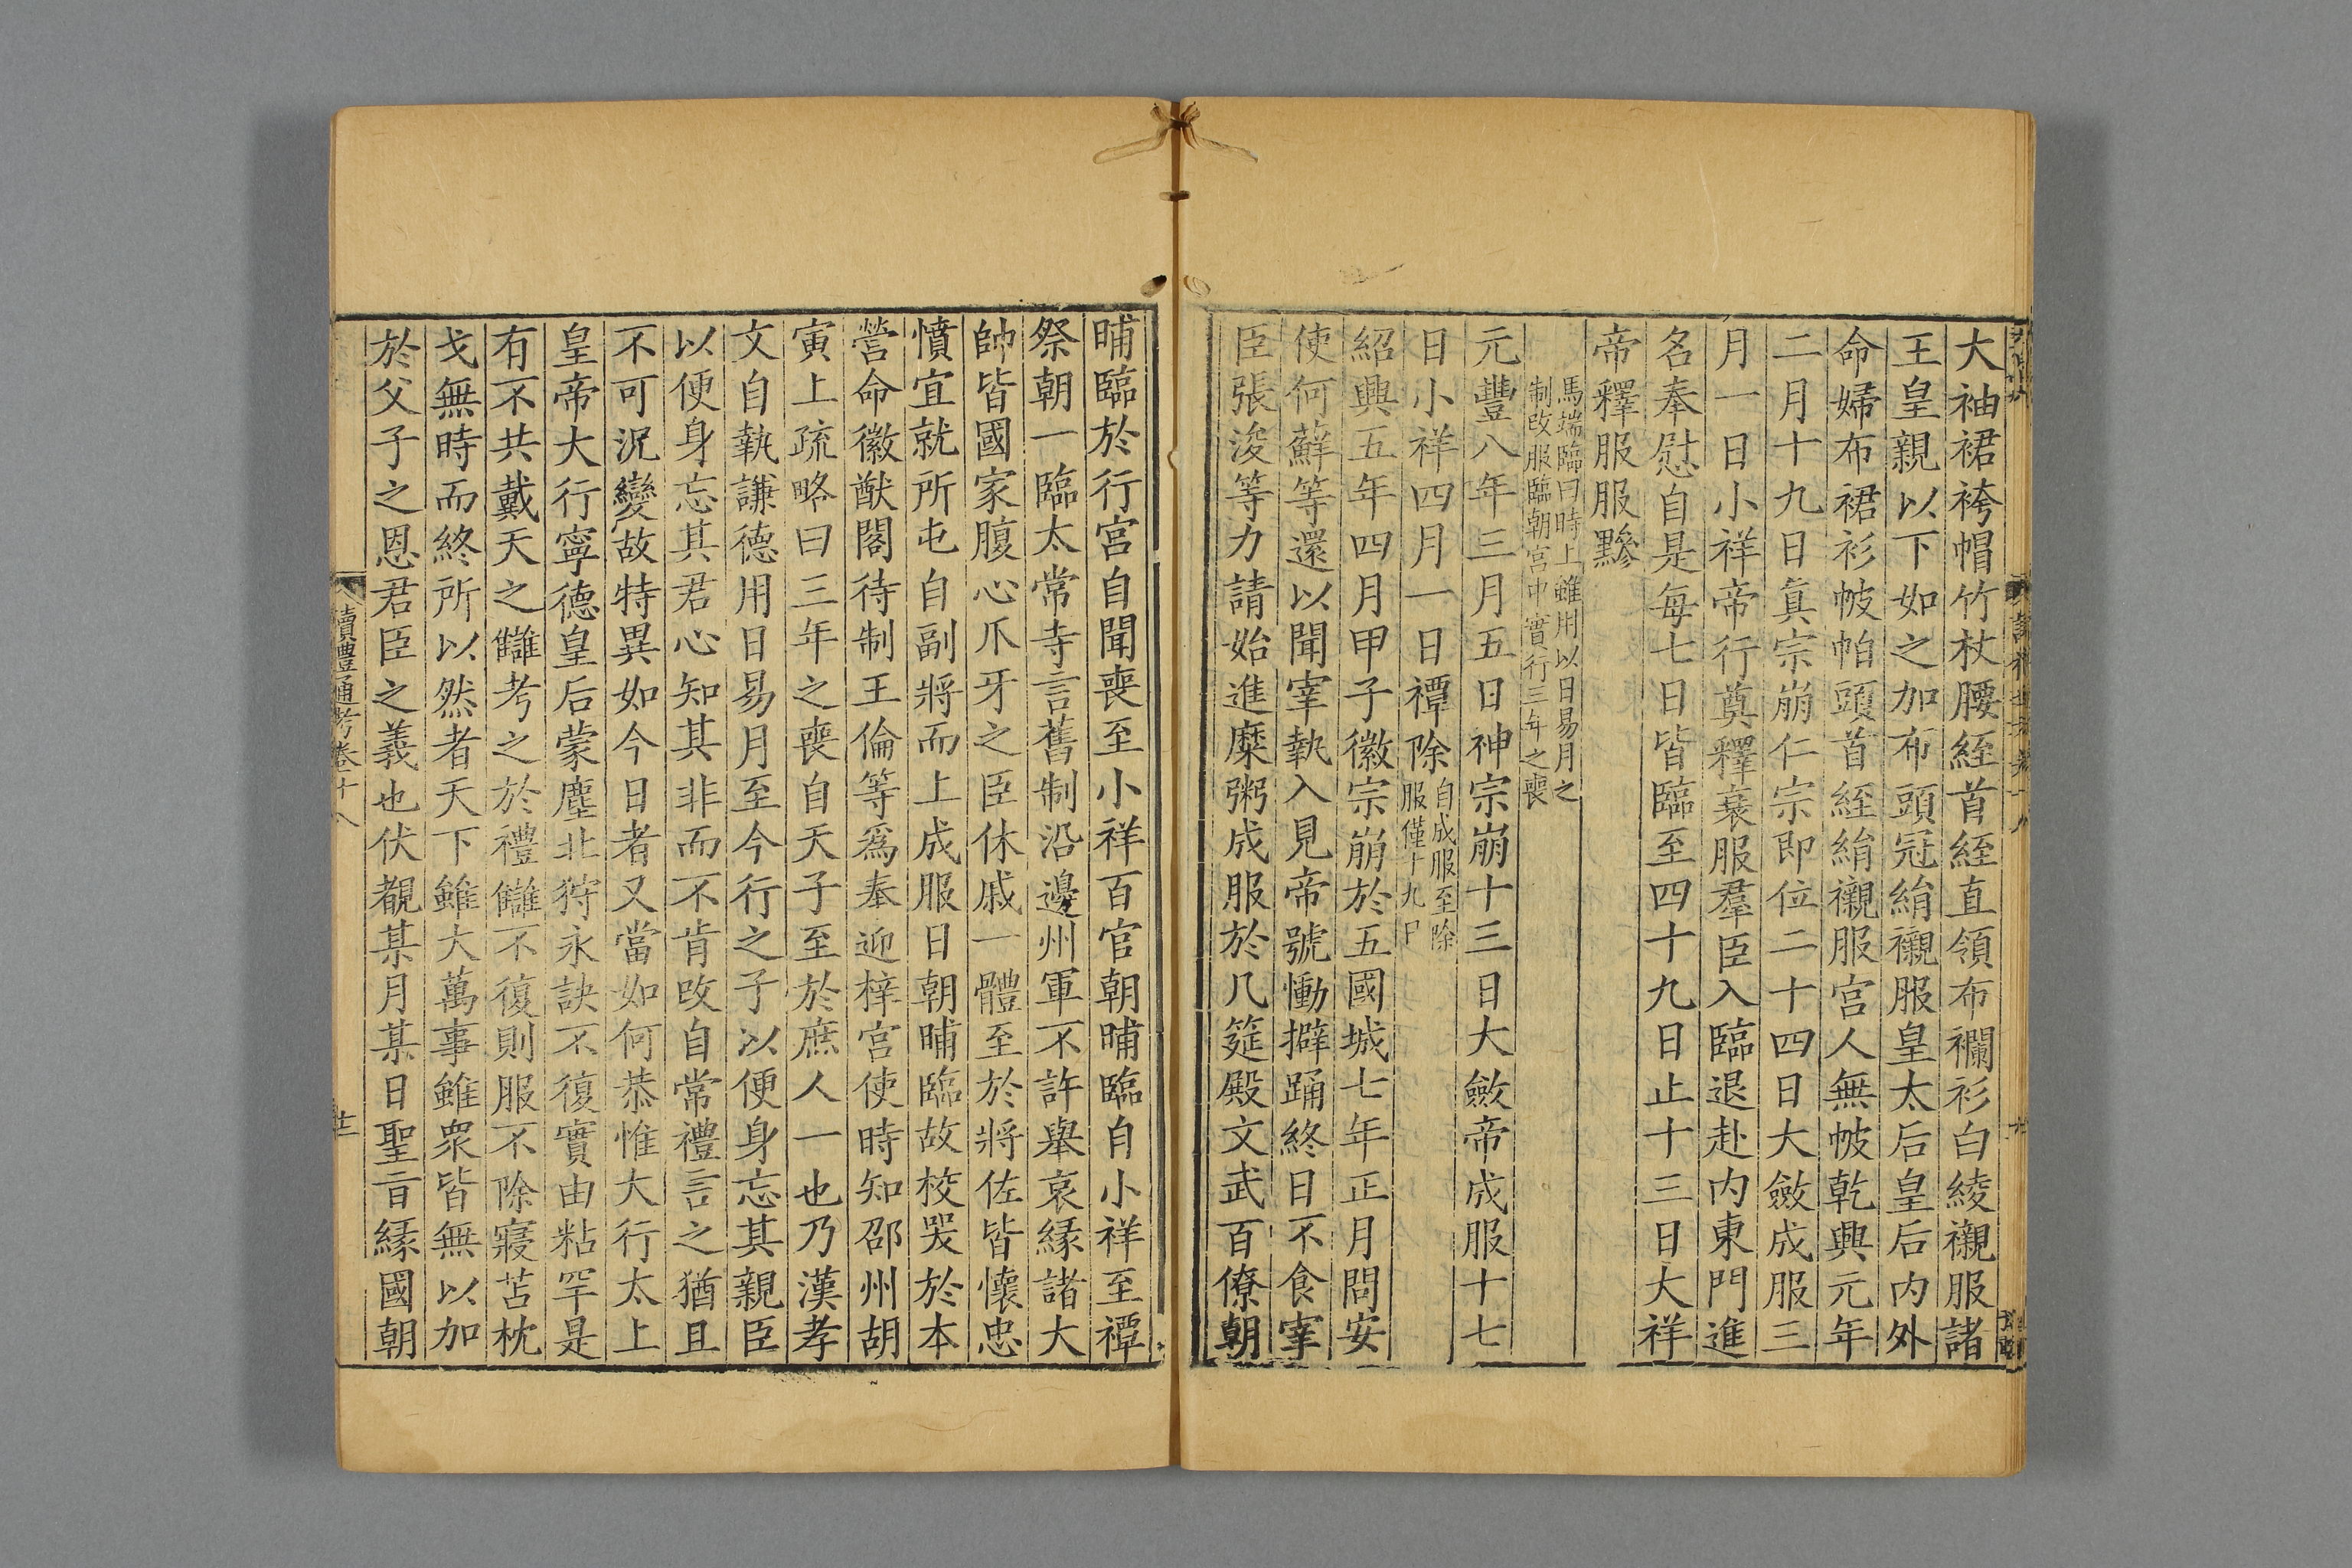 大袖裙袴帽竹杖腰絰首絰直領布襴衫白綾襯服諸
王皇親以下如之加布頭冠絹襯服皇太后皇后内外
命婦布裙衫帔帕頭首絰絹襯服宫人無帔乾興元年
二月十九日真宗崩仁宗即位二十四日大斂成服三
月一日小祥帝行奠釋衰服羣臣入臨退赴内東門進
名奉慰自是每七日皆臨至四十九日止十三日大祥
帝釋服服黲
馬端臨曰時上雖用以日易月之
制改服臨朝宫中實行三年之喪
元豐八年三月五日神宗崩十三日大斂帝成服十七
日小祥四月一日禫除自成服至除
服僅十九日
紹興五年四月甲子徽宗崩於五國城七年正月問安
使何蘚等還以聞宰執入見帝號慟擗踊終日不食宰
臣張浚等力請始進糜粥成服於几筵殿文武百僚朝
晡臨於行宫自聞喪至小祥百官朝晡臨自小祥至禫
祭朝一臨太常寺言舊制沿邊州軍不許舉哀緣諸大
帥皆國家腹心爪牙之臣休戚一體至於將佐皆懷忠
憤宜就所屯自副將而上成服日朝晡臨故校哭於本
營命徽猷閣待制王倫等爲奉迎梓宫使時知邵州胡
寅上疏略曰三年之喪自天子至於庶人一也乃漢孝
文自執謙德用日易月至今行之子以便身忘其親臣
以便身忘其君心知其非而不肯改自常禮言之猶且
不可況變故特異如今日者又當如何恭惟大行太上
皇帝大行寧德皇后蒙塵北狩永訣不復實由粘罕是
有不共戴天之讎考之於禮讎不復則服不除寢苫枕
戈無時而終所以然者天下雖大萬事雖眾皆無以加
於父子之恩君臣之義也伏覩某月某日聖旨緣國朝
讀禮通考卷十八